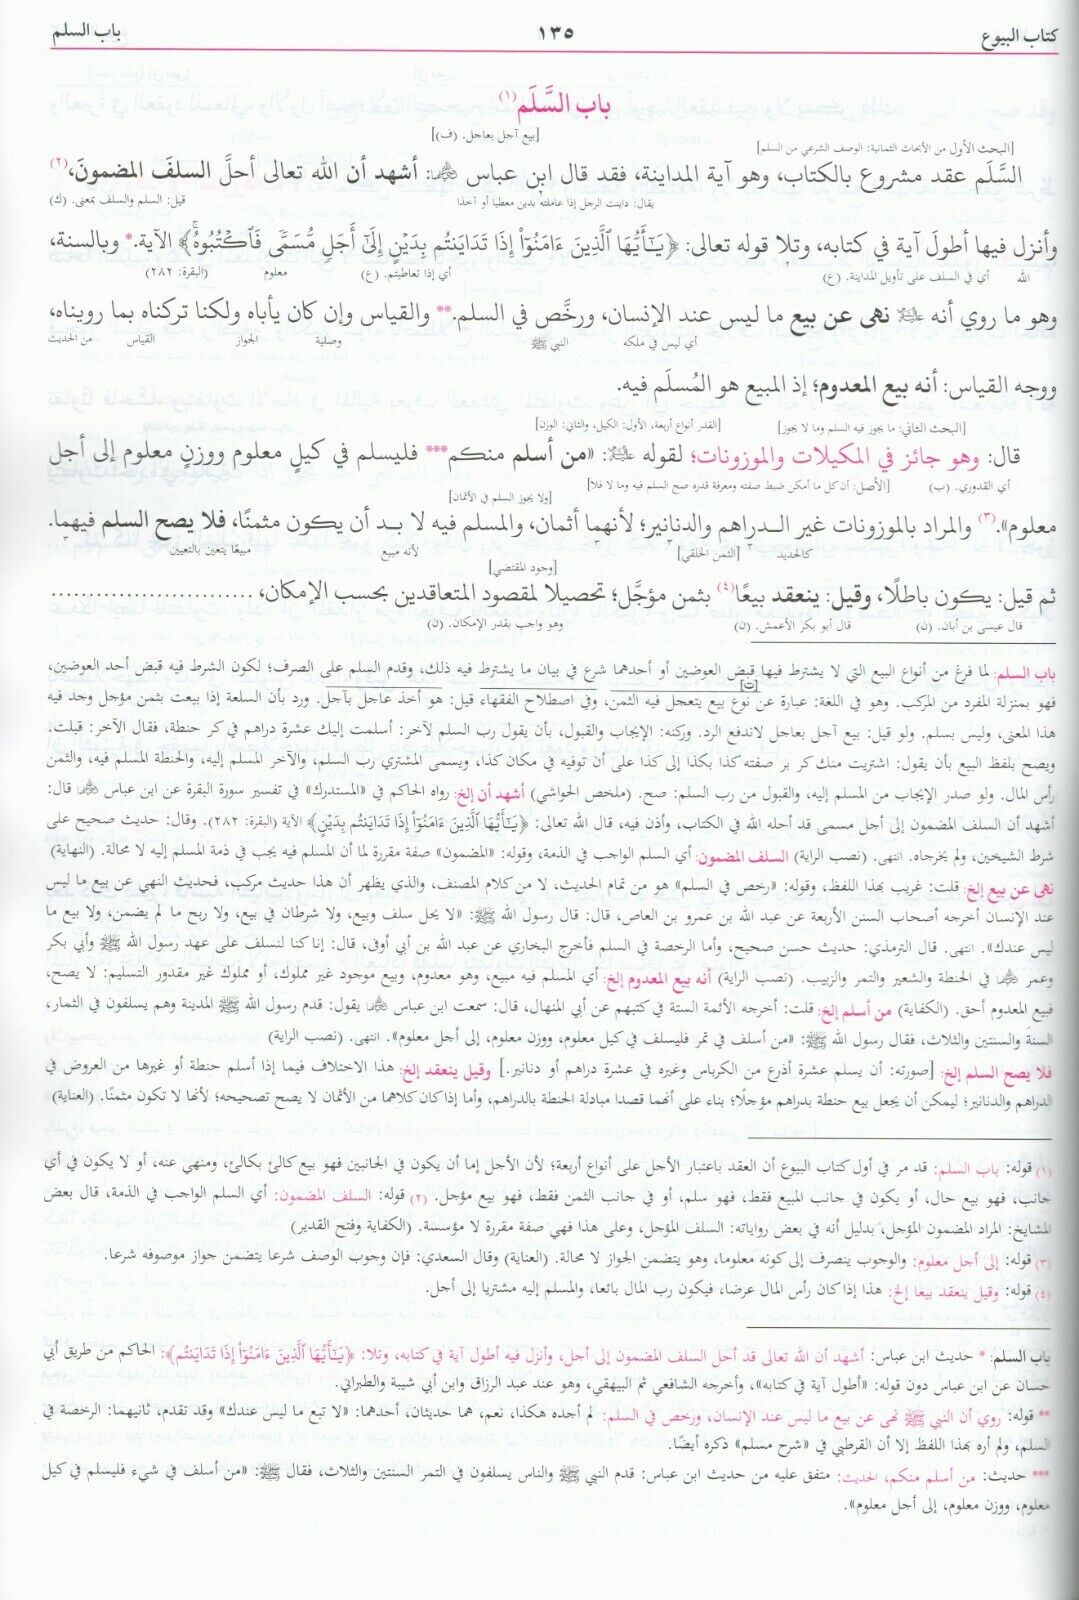 كتاب البيوع ١٣٥ باب السلم
باب السَّلَم(١)
[بيع آجل بعاجل. (ف)]
[البحث الأول من الأبحاث الثمانية: الوصف الشرعي من السلم]
السَّلَم عقد مشروع بالكتاب، وهو آية المداينة، فقد قال ابن عباس رضي الله عنهما: أشهد أن الله تعالى أحلَّ السلفَ المضمونَ،(٢)
يقال: داينت الرجل إذا عاملته بدين معطيا أو آخذا قيل: السلم والسلف بمعنى. (ك)
وأنزل فيها أطولَ آية في كتابه، وتلا قوله تعالى: ﴿يَـٰٓأَيُّهَا ٱلَّذِينَ ءَامَنُوٓاْ إِذَا تَدَايَنتُم بِدَيۡنٍ إِلَىٰٓ أَجَلٖ مُّسَمّٗى فَٱكۡتُبُوهُۚ﴾ الآية.* وبالسنة،
الله أي في السلف على تأويل المداينة. (ع) أي إذا تعاطيتم. (ع) معلوم (البقرة: ٢٨٢)
وهو ما روي أنه عليه السلام نهى عن بيع ما ليس عند الإنسان، ورخَّص في السلم.** والقياس وإن كان يأباه ولكنا تركناه بما رويناه،
أي ليس في ملكه النبي ﷺ وصلية الجواز القياس من الحديث
ووجه القياس: أنه بيع المعدوم؛ إذ المبيع هو المُسلَم فيه.
[البحث الثاني: ما يجوز فيه السلم وما لا يجوز] [القدر أنواع أربعة، الأول: الكيل، والثاني: الوزن]
قال: وهو جائز في المكيلات والموزونات؛ لقوله عليه السلام: «من أسلم منكم*** فليسلم في كيلٍ معلوم ووزنٍ معلوم إلى أجل
أي القدوري. (ب) [الأصل: أن كل ما أمكن ضبط صفته ومعرفة قدره صح السلم فيه وما لا فلا]
[ولا يجوز السلم في الأثمان]
معلوم».(٣) والمراد بالموزونات غير الدراهم والدنانير؛ لأنهما أثمان، والمسلم فيه لا بد أن يكون مثمنًا، فلا يصح السلم فيهما.
كالحديد [الثمن الخلقي] لأنه مبيع مبيعًا يتعين بالتعيين
[وجود المقتضي]
ثم قيل: يكون باطلًا، وقيل: ينعقد بيعًا(٤) بثمن مؤجَّل؛ تحصيلا لمقصود المتعاقدين بحسب الإمكان، ...........................
قال عيسى بن أبان. (ن) قال أبو بكر الأعمش. (ن) وهو واجب بقدر الإمكان. (ن)
باب السلم: لما فرغ من أنواع البيع التي لا يشترط فيها قبض العوضين أو أحدهما شرع في بيان ما يشترط فيه ذلك، وقدم السلم على الصرف؛ لكون الشرط فيه قبض أحد العوضين،
فهو بمنزلة المفرد من المركب. وهو في اللغة: عبارة عن نوع بيع يتعجل فيه الثمن، وفي اصطلاح الفقهاء قيل: هو أخذ عاجل بآجل. ورد بأن السلعة إذا بيعت بثمن مؤجل وجد فيه
هذا المعنى، وليس بسلم. ولو قيل: بيع آجل بعاجل لاندفع الرد. وركنه: الإيجاب والقبول، بأن يقول رب السلم لآخر: أسلمت إليك عشرة دراهم في كر حنطة، فقال الآخر: قبلت.
ويصح بلفظ البيع بأن يقول: اشتريت منك كر بر صفته كذا بكذا إلى كذا على أن توفيه في مكان كذا، ويسمى المشتري رب السلم، والآخر المسلم إليه، والحنطة المسلم فيه، والثمن
رأس المال. ولو صدر الإيجاب من المسلم إليه، والقبول من رب السلم: صح. (ملخص الحواشي) أشهد أن إلخ: رواه الحاكم في «المستدرك» في تفسير سورة البقرة عن ابن عباس رضي الله عنهما قال:
أشهد أن السلف المضمون إلى أجل مسمى قد أحله الله في الكتاب، وأذن فيه، قال الله تعالى: ﴿يَـٰٓأَيُّهَا ٱلَّذِينَ ءَامَنُوٓاْ إِذَا تَدَايَنتُم بِدَيۡنٍ﴾ الآية (البقرة: ٢٨٢). وقال: حديث صحيح على
شرط الشيخين، ولم يخرجاه. انتهى. (نصب الراية) السلف المضمون: أي السلم الواجب في الذمة، وقوله: «المضمون» صفة مقررة لما أن المسلم فيه يجب في ذمة المسلم إليه لا محالة. (النهاية)
نهى عن بيع إلخ: قلت: غريب بهذا اللفظ، وقوله: «رخص في السلم» هو من تمام الحديث، لا من كلام المصنف، والذي يظهر أن هذا حديث مركب، فحديث النهي عن بيع ما ليس
عند الإنسان أخرجه أصحاب السنن الأربعة عن عبد الله بن عمرو بن العاص، قال: قال رسول الله ﷺ: «لا يحل سلف وبيع، ولا شرطان في بيع، ولا ربح ما لم يضمن، ولا بيع ما
ليس عندك». انتهى. قال الترمذي: حديث حسن صحيح، وأما الرخصة في السلم فأخرج البخاري عن عبد الله بن أبي أوفى، قال: إنا كنا لنسلف على عهد رسول الله ﷺ وأبي بكر
وعمر رضي الله عنهما في الحنطة والشعير والتمر والزبيب. (نصب الراية) أنه بيع المعدوم إلخ: أي المسلم فيه مبيع، وهو معدوم، وبيع موجود غير مملوك، أو مملوك غير مقدور التسليم: لا يصح،
فبيع المعدوم أحق. (الكفاية) من أسلم إلخ: قلت: أخرجه الأئمة الستة في كتبهم عن أبي المنهال، قال: سمعت ابن عباس رضي الله عنهما يقول: قدم رسول الله ﷺ المدينة وهم يسلفون في الثمار،
السنة والسنتين والثلاث، فقال رسول الله ﷺ: «من أسلف في تمر فليسلف في كيل معلوم، ووزن معلوم، إلى أجل معلوم». انتهى. (نصب الراية)
فلا يصح السلم إلخ: [صورته: أن يسلم عشرة أذرع من الكرباس وغيره في عشرة دراهم أو دنانير.] وقيل ينعقد إلخ: هذا الاختلاف فيما إذا أسلم حنطة أو غيرها من العروض في
الدراهم والدنانير؛ ليمكن أن يجعل بيع حنطة بدراهم مؤجلًا؛ بناء على أنهما قصدا مبادلة الحنطة بالدراهم، وأما إذا كان كلاهما من الأثمان لا يصح تصحيحه؛ لأنها لا تكون مثمنًا. (العناية)
(١) قوله: باب السلم: قد مر في أول كتاب البيوع أن العقد باعتبار الأجل على أنواع أربعة؛ لأن الأجل إما أن يكون في الجانبين فهو بيع كالئ بكالئ، ومنهي عنه، أو لا يكون في أي
جانب، فهو بيع حال، أو يكون في جانب المبيع فقط، فهو سلم، أو في جانب الثمن فقط، فهو بيع مؤجل. (٢) قوله: السلف المضمون: أي السلم الواجب في الذمة، قال بعض
المشايخ: المراد المضمون المؤجل، بدليل أنه في بعض رواياته: السلف المؤجل، وعلى هذا فهي صفة مقررة لا مؤسسة. (الكفاية وفتح القدير)
(٣) قوله: إلى أجل معلوم: والوجوب ينصرف إلى كونه معلوما، وهو يتضمن الجواز لا محالة. (العناية) وقال السعدي: فإن وجوب الوصف شرعا يتضمن جواز موصوفه شرعا.
(٤) قوله: وقيل ينعقد بيعا إلخ: هذا إذا كان رأس المال عرضا، فيكون رب المال بائعا، والمسلم إليه مشتريا إلى أجل.
باب السلم: * حديث ابن عباس: أشهد أن الله تعالى قد أحل السلف المضمون إلى أجل، وأنزل فيه أطول آية في كتابه، وتلا: ﴿يَـٰٓأَيُّهَا ٱلَّذِينَ ءَامَنُوٓاْ إِذَا تَدَايَنتُم﴾: الحاكم من طريق أبي
حسان عن ابن عباس دون قوله: «أطول آية في كتابه»، وأخرجه الشافعي ثم البيهقي، وهو عند عبد الرزاق وابن أبي شيبة والطبراني.
** قوله: روي أن النبي ﷺ نهى عن بيع ما ليس عند الإنسان، ورخص في السلم: لم أجده هكذا، نعم، هما حديثان، أحدهما: «لا تبع ما ليس عندك» وقد تقدم، ثانيهما: الرخصة في
السلم، ولم أره بهذا اللفظ إلا أن القرطبي في «شرح مسلم» ذكره أيضًا.
*** حديث: من أسلم منكم، الحديث: متفق عليه من حديث ابن عباس: قدم النبي ﷺ والناس يسلفون في التمر السنتين والثلاث، فقال ﷺ: «من أسلف في شيء فليسلم في كيل
معلوم، ووزن معلوم، إلى أجل معلوم».